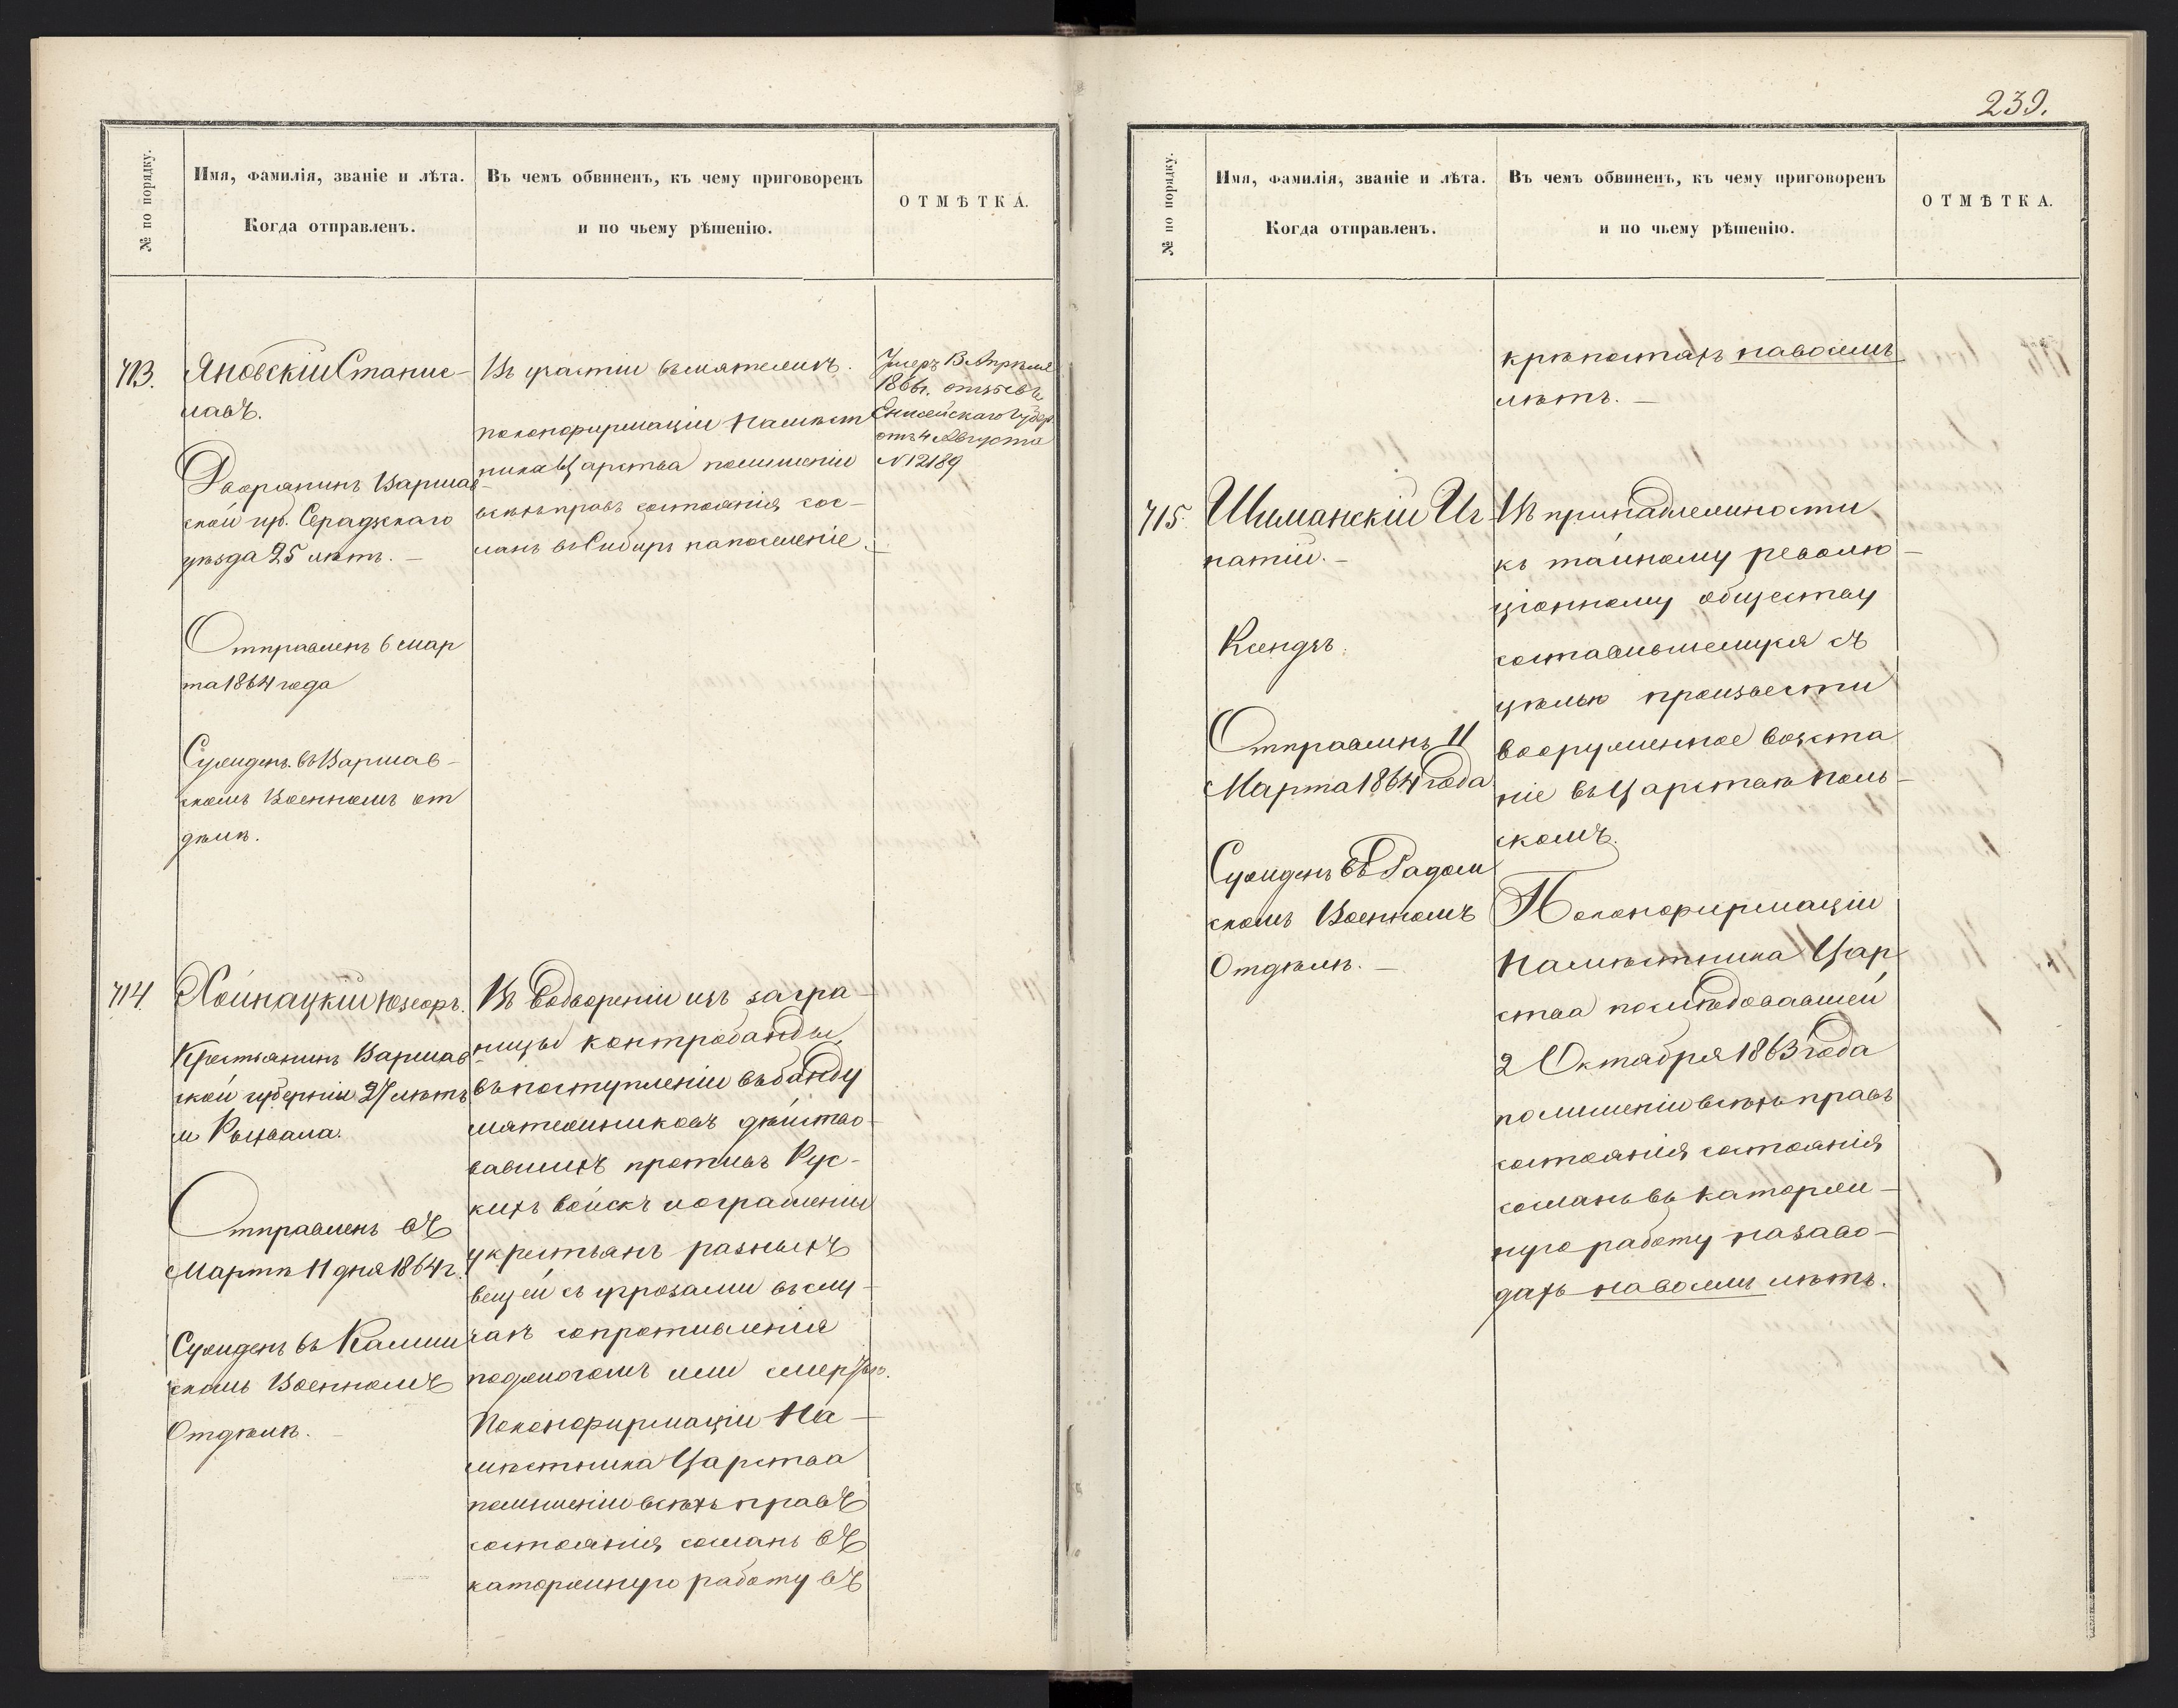 № по порядку.
Имя, фамилія, званіе и лѣта.
Когда отправленъ.
Въ чемъ обвиненъ, къ чему приговоренъ
и по чьему рѣшенію.
ОТМѢТКА.
713.
Яновскій Станис-
лавъ.
Дворянинъ Варшав-
ской гу. Серадзскаго
уѣзда 25 лѣтъ. —
Отправленъ 6 мар
та 1864 года
Сужденъ въ Варшав-
скомъ Военномъ от
дѣлѣ.
Въ участіи въ мятежѣ.
по конфирмаціи Намѣст
ника Царства по лишеніи
всѣхъ правъ состоянія сос-
ланъ въ Сибирь на поселеніе. —
Умеръ 13 Апрѣля
1866 г. отзывъ
Енисейскаго Губер.
отъ 4 Августа
№ 12189
714
Хойнацкій Юзефъ.
Крестьянинъ Варшав-
ской губерніи 27 лѣтъ
Отправленъ въ
Мартѣ 11 дня 1864 г.
Сужденъ въ Калиш
скомъ Военномъ
Отдѣлѣ. —
Въ водвореніи изъ загра-
ницы контробанды,
въ поступленіи въ банду
мятежниковъ дѣйство-
вавшихъ противъ Рус-
кихъ войскъ и ограбленіи
у крестьянъ разныхъ
вещей съ угрозами въ слу-
чаѣ сопротивленія
поджогомъ или смертью.
По конфирмаціи На-
мѣстника Царства
по лишеніи всѣхъ правъ
состоянія сосланъ въ
каторжную работу въ
239.
№ по порядку.
Имя, фамилія, званіе и лѣта.
Когда отправленъ.
Въ чемъ обвиненъ, къ чему приговоренъ
и по чьему рѣшенію.
ОТМѢТКА.
крѣпостяхъ на восемь
лѣтъ. —
715.
Шиманскій Иг
натій. —
Ксендзъ.
Отправленъ 11
Марта 1864 года
Сужденъ въ Радом
скомъ Военномъ
Отдѣлѣ. —
Въ принадлежности
къ тайному револю-
ціонному обществу
составившемуся съ
цѣлью произвести
вооруженное возста
ніе въ Царствѣ Поль-
скомъ.
По конфирмаціи
Намѣстника Цар
ства послѣдовавшей
2 Октября 1863 года
по лишеніи всѣхъ правъ
состоянія состоянія
сосланъ въ каторж-
ную работу на заво-
дахъ на восемь лѣтъ.